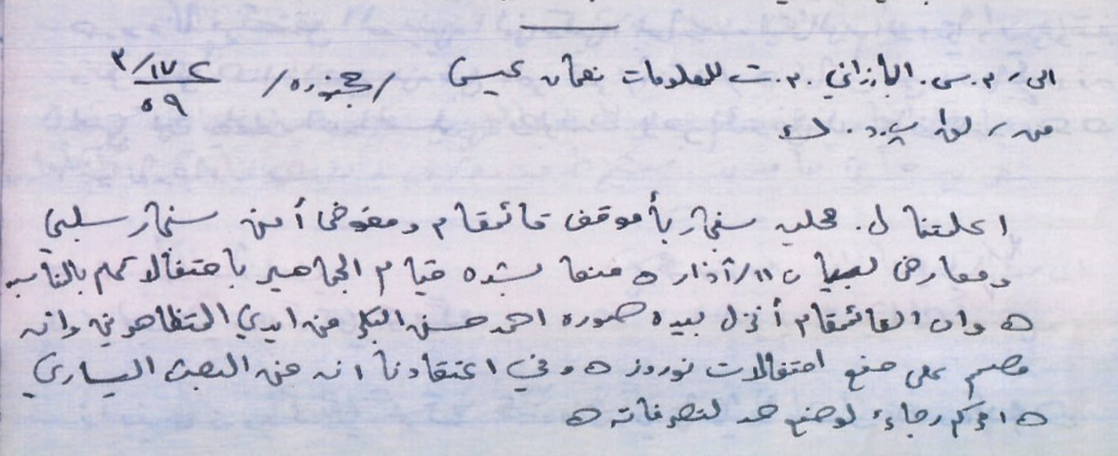 الى / م. س. البارزاني. م. ت للمعلومات نعمان عيسى / جـ زه / ٢ ١٧/٣
٥٩
من / لق ا ب. د. ك
اعلمتنا ل. محلية سنجار بأن موقف قائمقام ومفوض أمن سنجار سلبي
ومعارض لبيان ١١/آذار ه منعا بشده قيام الجماهير باحتفالاتهم بالمناسبه
ه وان القائمقام أنزل بيده صوره احمد حسن البكر من ايدي المتظاهرين وانه
مصمم على منع احتفالات نوروز ه وفي اعتقادنا انه من البعث اليساري
ه امركم رجاءً لوضع حد لتصرفاته ه